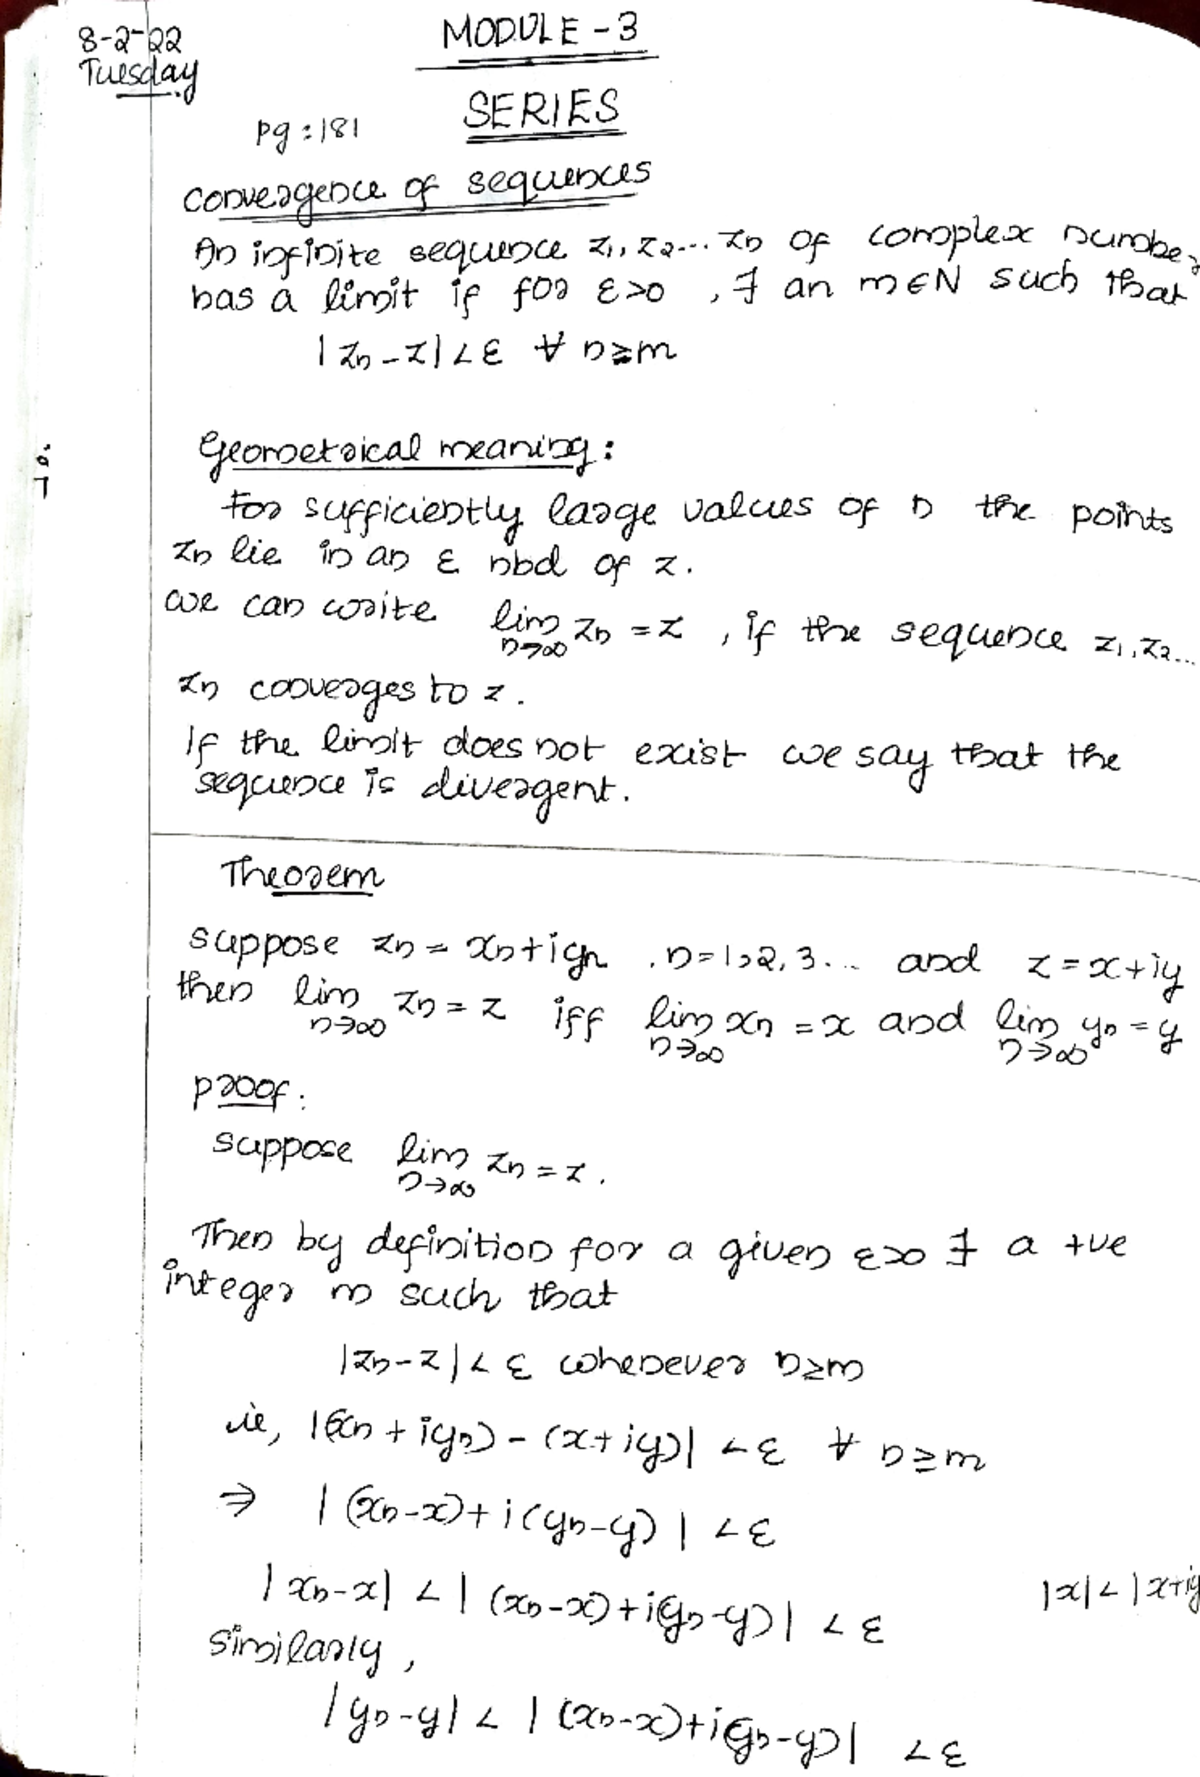 8-2-22
Tuesday
MODULE - 3
pg : 181
SERIES
Convergence of sequences
An infinite sequence z₁, z₂... zn of complex number
has a limit if for ε>0 , ∃ an m∈N such that
|zn - z| < ε ∀ n≥m
Geometrical meaning :
For sufficiently large values of n the points
zn lie in an ε nbd of z.
we can write lim n→∞ zn = z , if the sequence z₁, z₂...
zn converges to z.
If the limit does not exist we say that the
sequence is divergent.
Theorem
suppose zn = xn + iyn . n=1,2,3... and z = x+iy
then lim n→∞ zn = z iff lim n→∞ xn = x and lim n→∞ yn = y
proof :
suppose lim n→∞ zn = z .
Then by definition for a given ε>0 ∃ a +ve
integer m such that
|zn - z| < ε whenever n≥m
ie, |(xn + iyn) - (x+iy)| < ε ∀ n≥m
⇒ |(xn-x) + i(yn-y)| < ε
|xn-x| < |(xn-x)+i(yn-y)| < ε
|x| < |x+iy
Similarly ,
|yn-y| < |(xn-x)+i(yn-y)| < ε